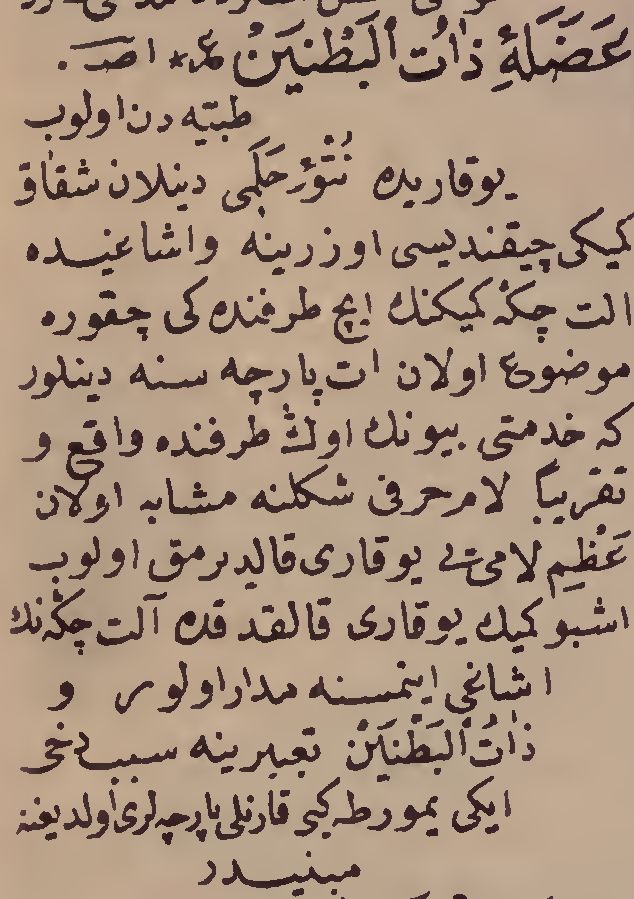 عَضَلَهٔ ذَاتُ الْبَطْنَيَنْ ع اصـ .
طبیه دن اولوب
یوقاریده نُتُوْءِ حَلَمِی دینلان شقاق
کمیکی چیقندیسی اوزرینه واشاغیده
الت چکه کمیکنك ایچ طرفنده کی چقوره
موضوع اولان ات پارچه سنه دینلور
که خدمتی بیونك اوڭ طرفنده واقع و
تقریبًا لام حرفی شکلنه مشابه اولان
عَظْمِ لامی یی یوقاری قالدیرمق اولوب
اشبو کمیك یوقاری قالقدقده آلت چکه نك
اشاغی اینمسنه مدار اولور و
ذَاتُ الْبَطْنَيَنْ تعبیرینه سبب دخی
ایکی یمورطه کبی قارنلی پارچه لری اولدیغنه
مبنیدر